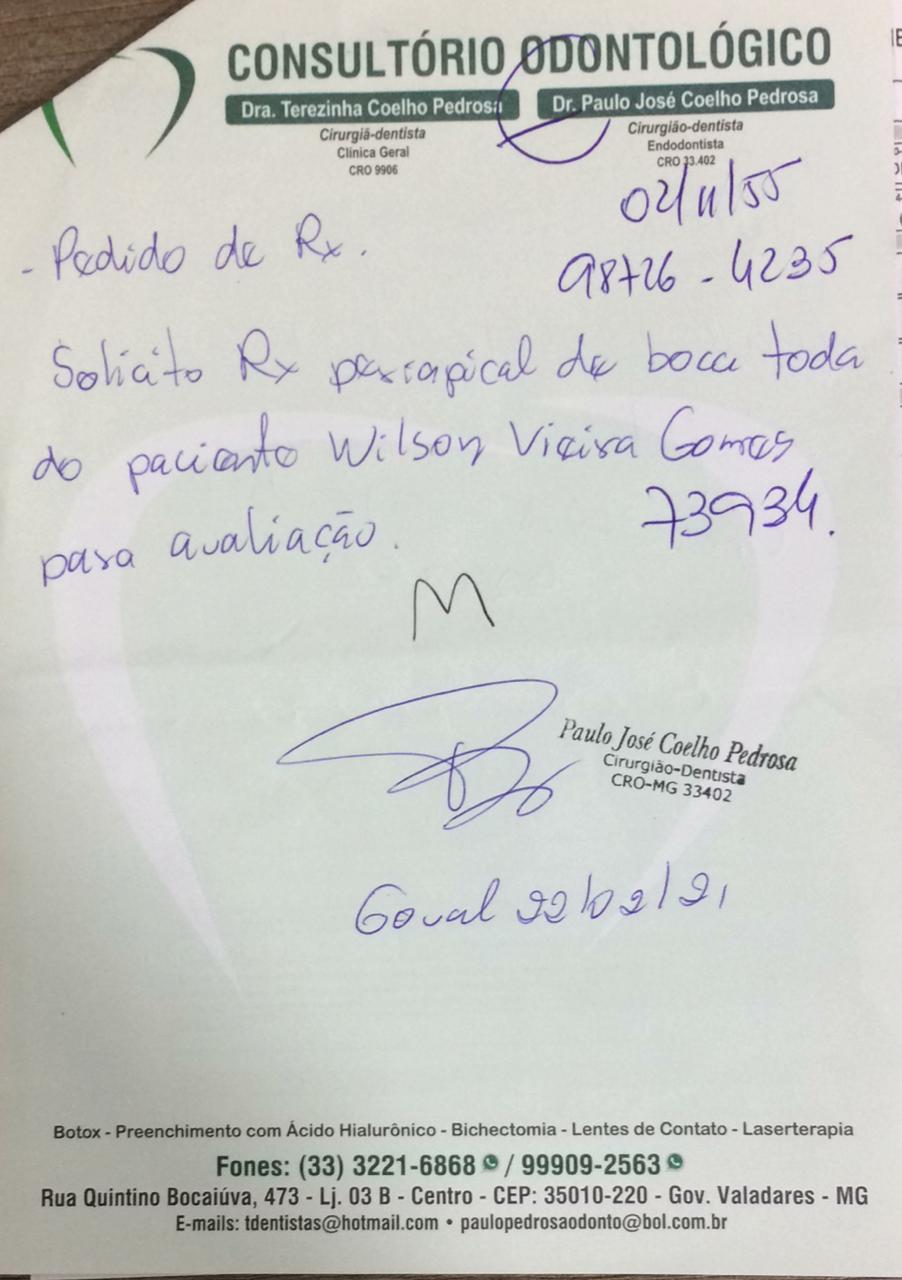 CONSULTÓRIO ODONTOLÓGICO
Dra. Terezinha Coelho Pedrosa
Cirurgiã-dentista
Clínica Geral
CRO 9906
Dr. Paulo José Coelho Pedrosa
Cirurgião-dentista
Endodontista
CRO 33.402
02/11/55
98726-4235
- Pedido de Rx.
Solicito Rx periapical de boca toda
do paciente Wilson Vieira Gomes
73934.
para avaliação.
M
Paulo José Coelho Pedrosa
Cirurgião-Dentista
CRO-MG 33402
Goval 22/02/21
Botox - Preenchimento com Ácido Hialurônico - Bichectomia - Lentes de Contato - Laserterapia
Fones: (33) 3221-6868 / 99909-2563
Rua Quintino Bocaiúva, 473 - Lj. 03 B - Centro - CEP: 35010-220 - Gov. Valadares - MG
E-mails: tdentistas@hotmail.com • paulopedrosaodonto@bol.com.br